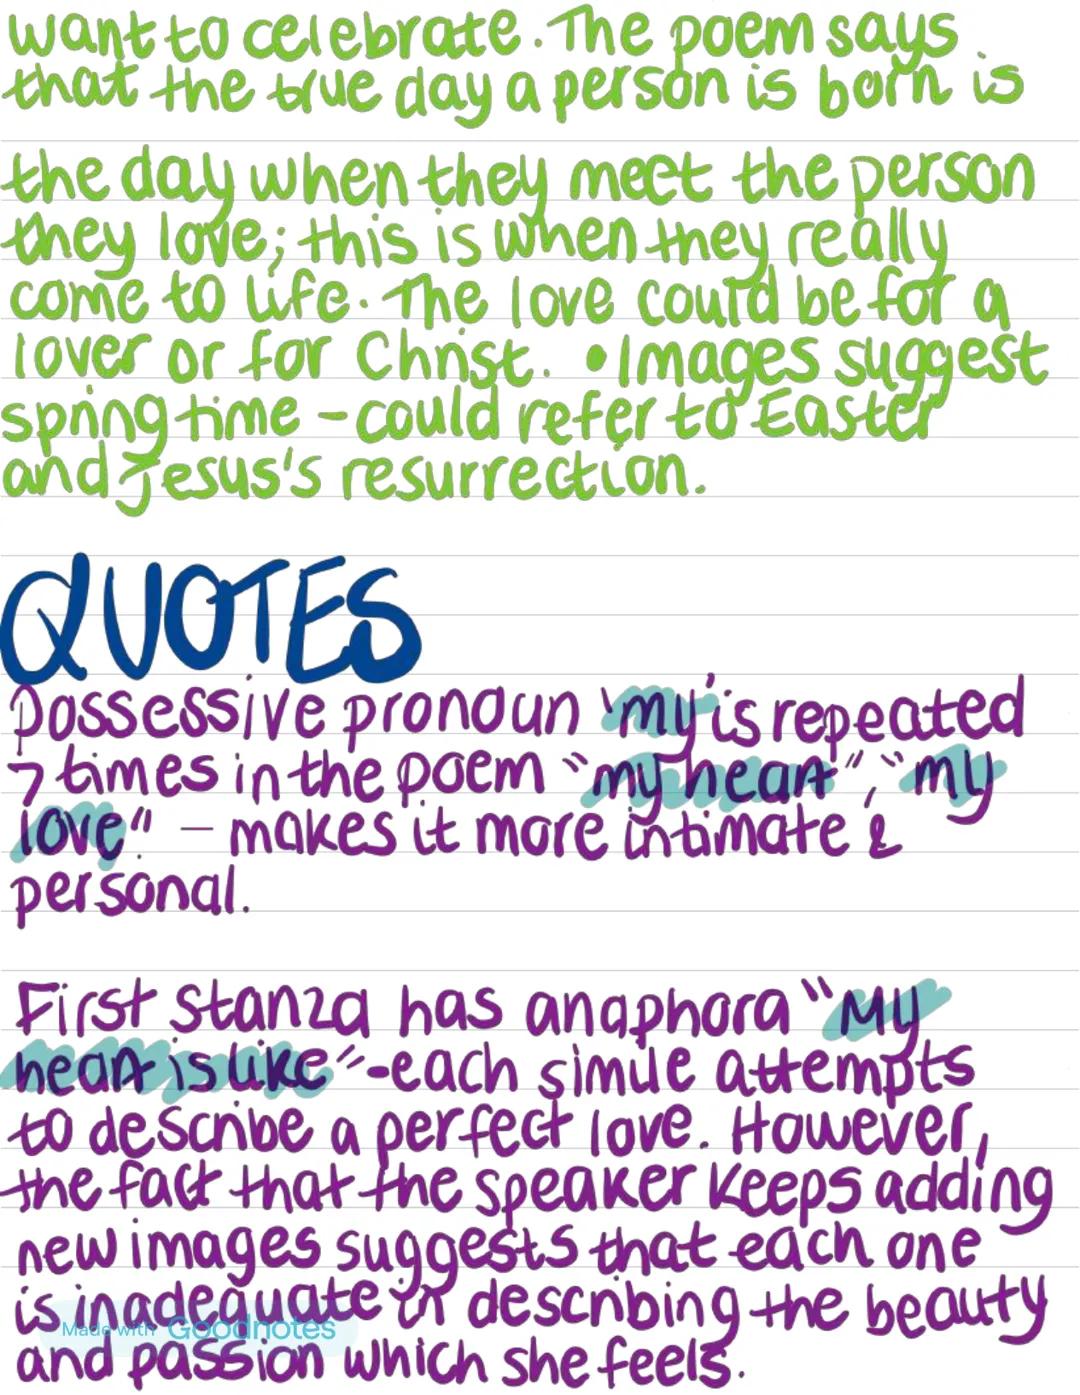 want to celebrate. The poem says
that the true day a person is born is
the day when they meet the person
they love; this is when they really
come to life. The love could be for a
lover or for Christ. •Images suggest
springtime - could refer to Easter
and Jesus's resurrection.
QUOTES
Possessive pronoun 'my' is repeated
7 times in the poem "my heart", "my
love" - makes it more intimate &
personal.
First stanza has anaphora "My
heart is like" - each simile attempts
to describe a perfect love. However,
the fact that the speaker keeps adding
new images suggests that each one
is inadequate in describing the beauty
Made with Goodnotes
and passion which she feels.